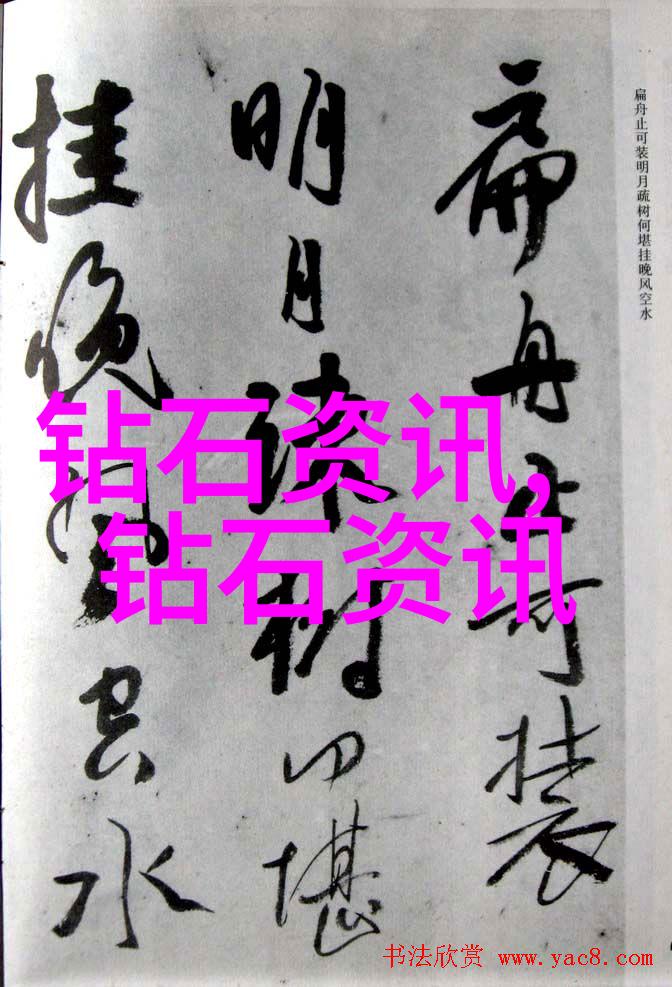 扁舟止可装
明月疏树何堪
挂晚风空水
扁舟止可装明月疏树何堪挂晚风空水
钻石资讯,
钻石资讯
书法欣赏 www.yac8.com